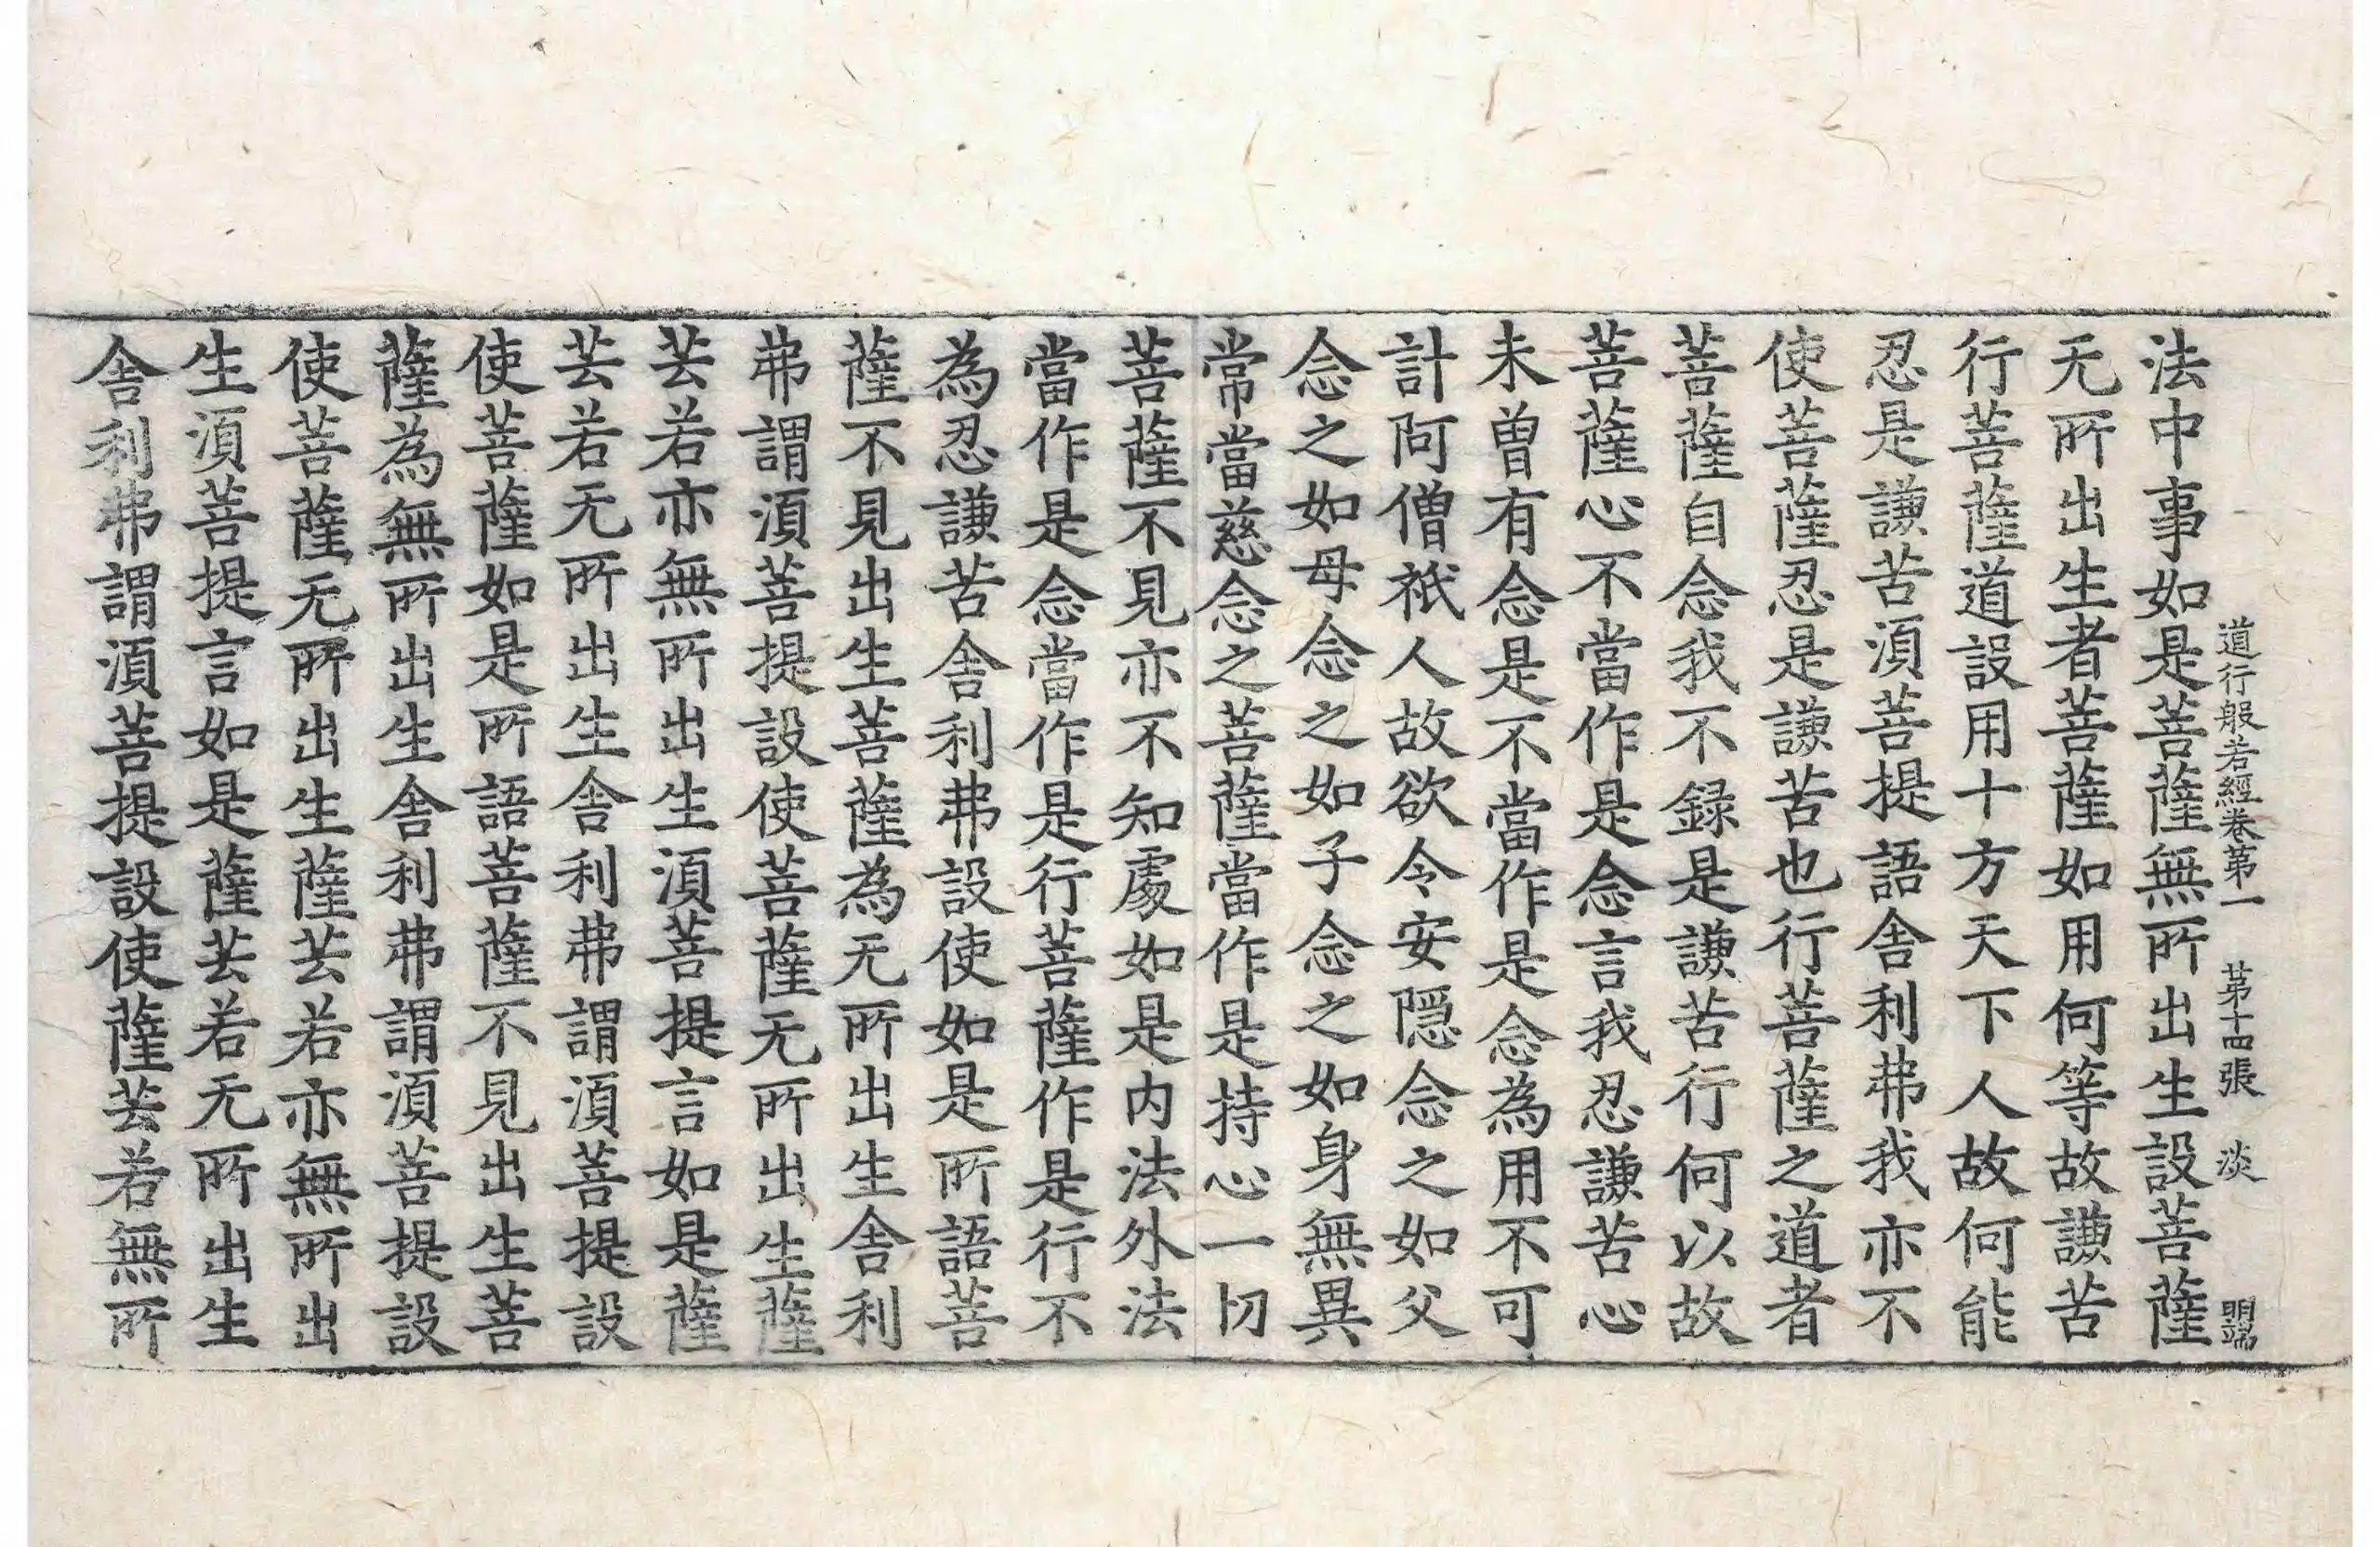 道行般若經卷第一 第十四張 淡 明端
法中事如是菩薩無所出生設菩薩
无所出生者菩薩如用何等故謙苦
行菩薩道設用十方天下人故何能
忍是謙苦須菩提語舍利弗我亦不
使菩薩忍是謙苦也行菩薩之道者
菩薩自念我不録是謙苦行何以故
菩薩心不當作是念言我忍謙苦心
未曾有念是不當作是念為用不可
計阿僧祇人故欲令安隠念之如父
念之如母念之如子念之如身無異
常當慈念之菩薩當作是持心一切
菩薩不見亦不知處如是内法外法
當作是念當作是行菩薩作是行不
為忍謙苦舍利弗設使如是所語菩
薩不見出生菩薩為无所出生舍利
弗謂須菩提設使菩薩无所出生薩
芸若亦無所出生須菩提言如是薩
芸若无所出生舍利弗謂須菩提設
使菩薩如是所語菩薩不見出生菩
薩為無所出生舍利弗謂須菩提設
使菩薩无所出生薩芸若亦無所出
生須菩提言如是薩芸若无所出生
舍利弗謂須菩提設使薩芸若無所